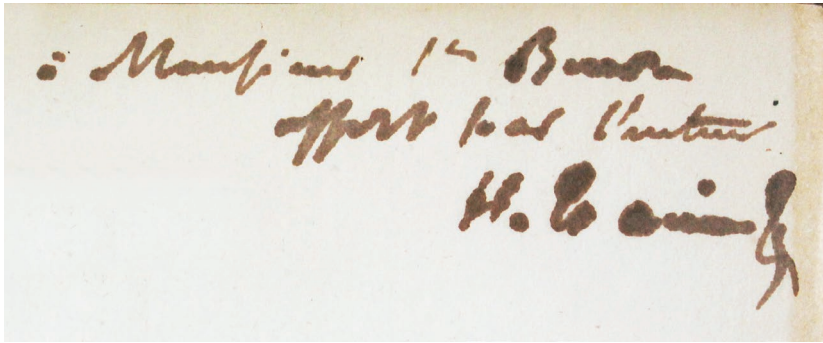 à Monsieur Ste Beuve
offert par l'auteur
H. Taine